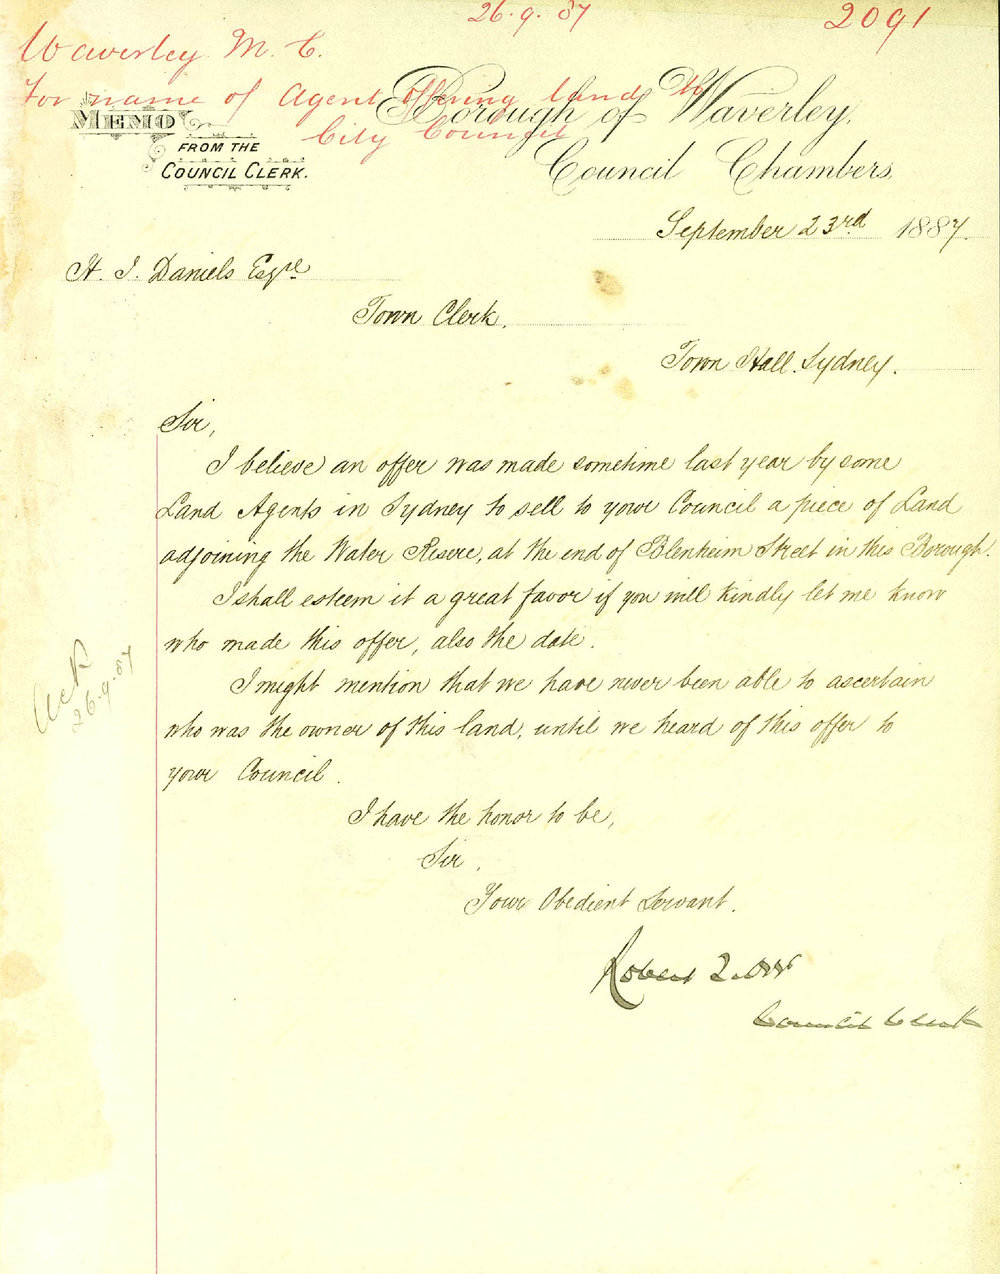 26.9.87
2091
Waverley M. C.
For name of Agent offering land to
City Council
MEMO
FROM THE
COUNCIL CLERK.
Borough of Waverley,
Council Chambers,
September 23rd 1887.
H. J. Daniels Esqre
Town Clerk.
Town Hall. Sydney.
Sir,
I believe an offer was made sometime last year by some
Land Agents in Sydney to sell to your Council a piece of Land
adjoining the Water Resere, at the end of Blenheim Street in this Borough.
I shall esteem it a great favor if you will kindly let me know
who made this offer, also the date.
I might mention that we have never been able to ascertain
who was the owner of this land, until we heard of this offer to
your Council.
Ack
26.9.87
I have the honor to be,
Sir.
Your Obedient Servant.
Robert
Council Clerk